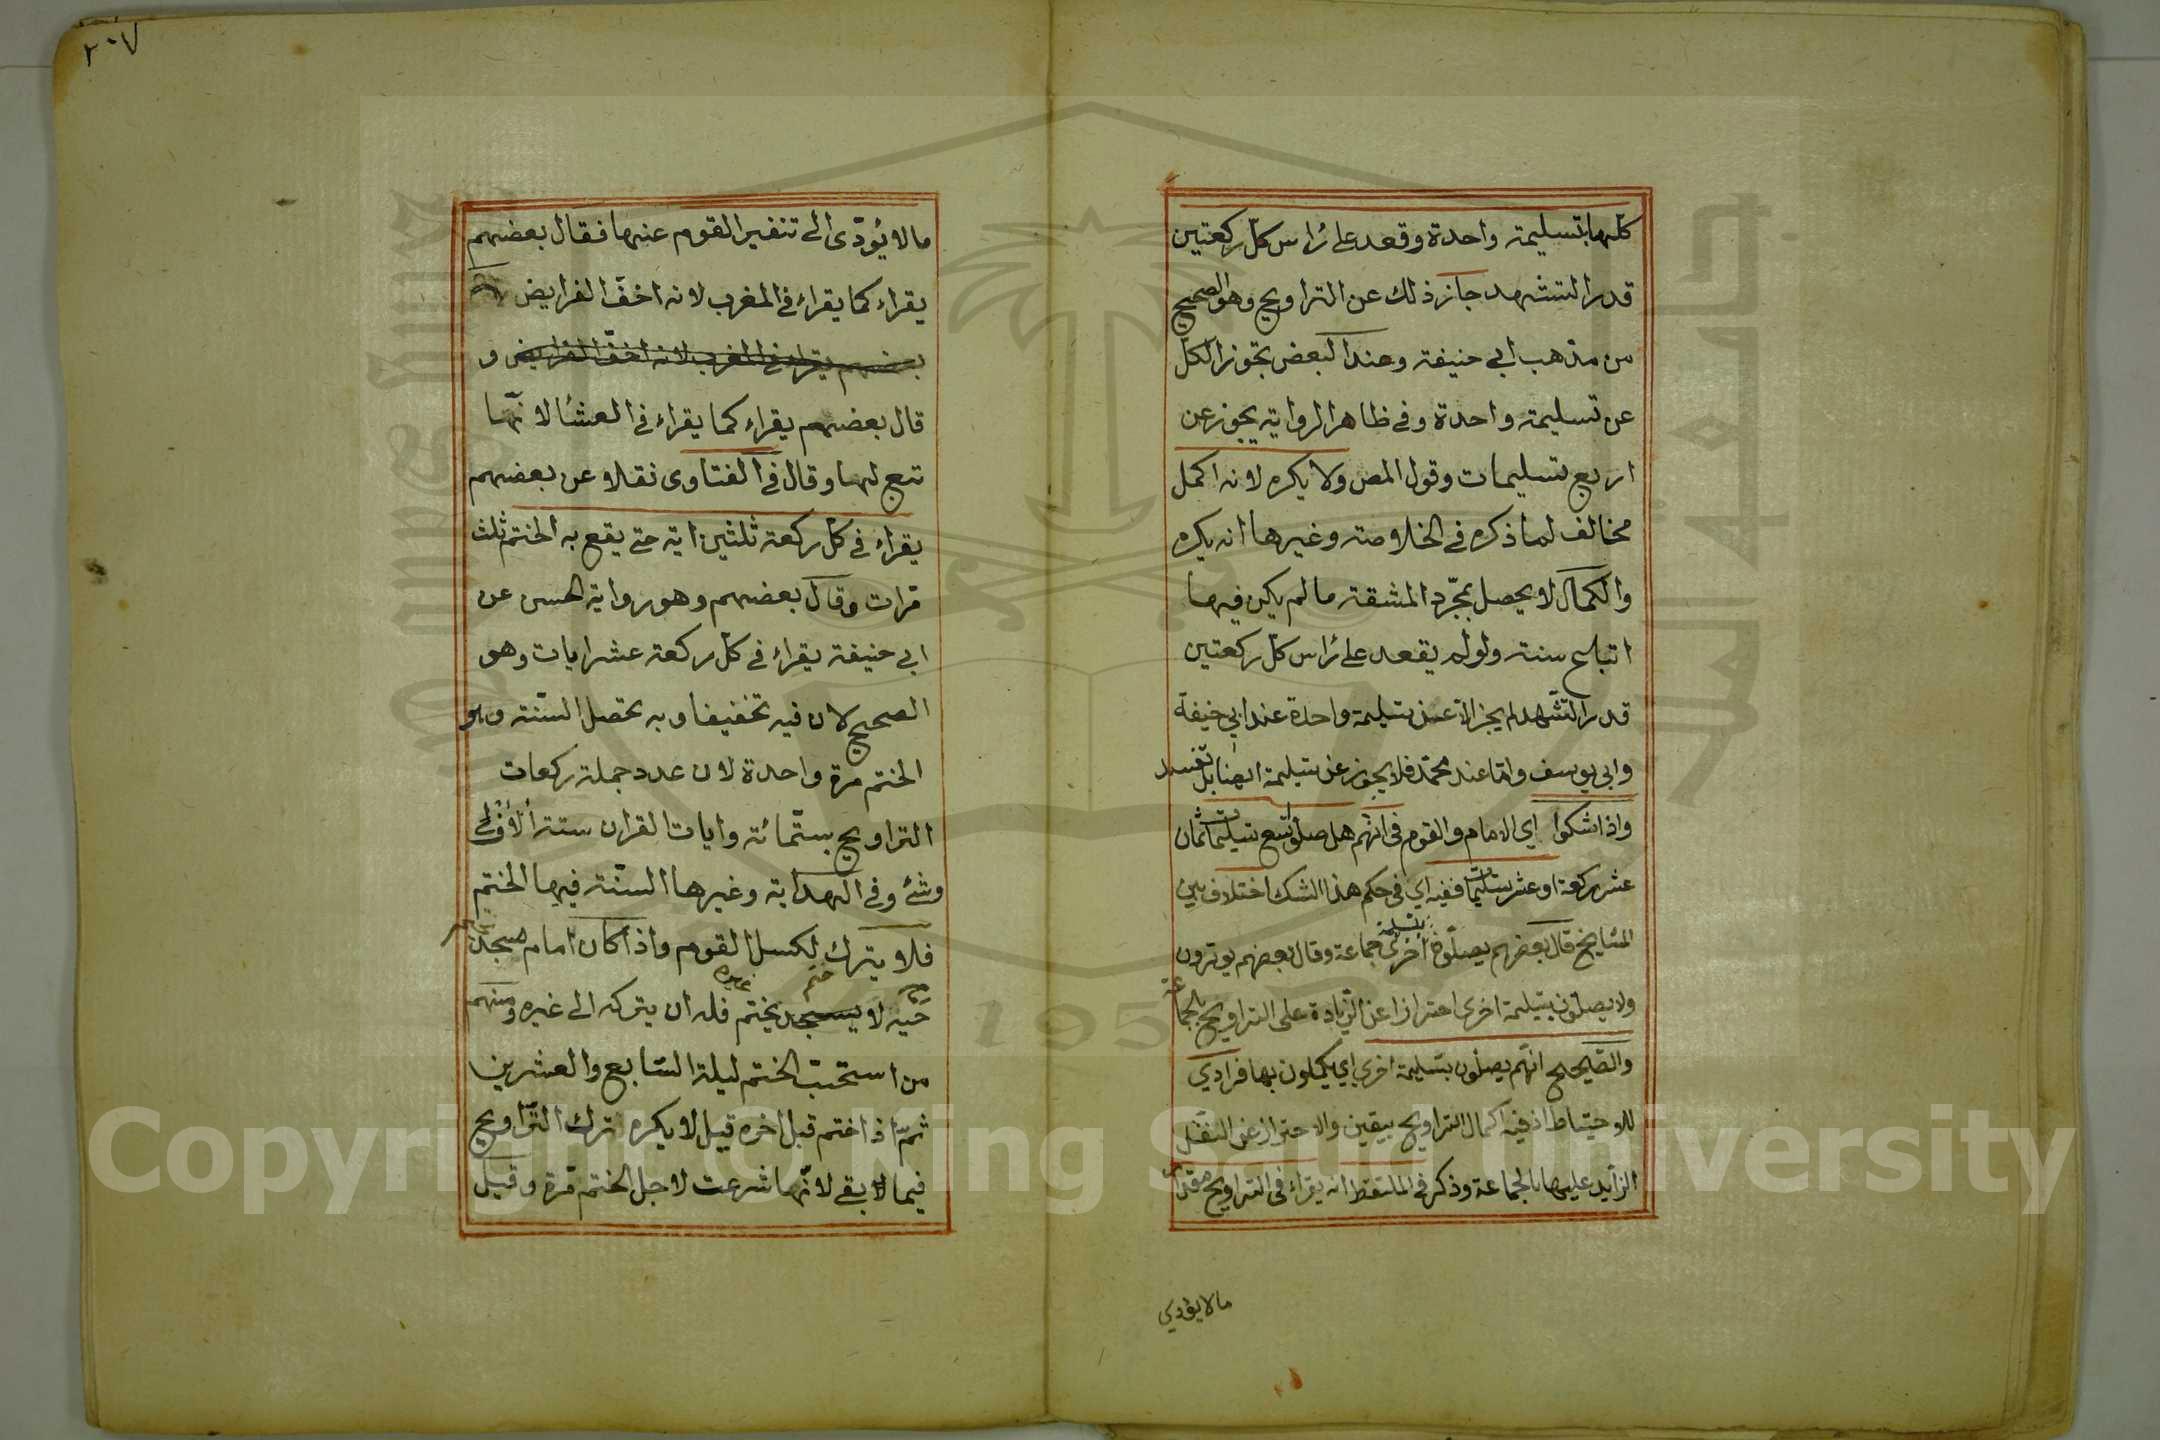 كلّها بتسليمة واحدة وقعد على رأس كلّ ركعتين
قدر التشهد جاز ذلك عن التراويح وهو الصحيح
من مذهب ابي حنيفة وعند البعض تجوز الكل
عن تسليمة واحدة وفي ظاهر الرواية يجوز عن
اربع تسليمات وقول المص ولا يكره لانه اكمل
مخالف لما ذكره في الخلاصة وغيرها انه يكره
والكمال لا يحصل بمجرّد المشقة ما لم يكن فيها
اتباع سنة ولو لم يقعد على رأس كل ركعتين
قدر التشهد لم يجز الا عن تسليمة واحدة عند ابي حنيفة
وابي يوسف وامّا عند محمّد فلا يجوز عن تسليمة ايضا بل تفسد
واذا شكوا اي الامام والقوم في انّهم هل صلّوا تسع تسليمات ثمان
عشر ركعة او عشر تسليمات ففيه اي في حكم هذا الشك اختلاف بين
المشايخ قال بعضهم يصلّون بتسليمة اخرى جماعة وقال بعضهم يوترون
ولا يصلّون بتسليمة اخرى احترازا عن الزيادة على التراويح بالجماعة
والصّحيح انّهم يصلّون بتسليمة اخرى اي يكملون بها فرادي
للاحتياط اذ فيه اكمال التراويح بيقين والاحتراز عن التنفل
الزّايد عليها بالجماعة وذكر في الملتقط انه يقراء في التراويح مقدار
ما لا يؤدي
٢٠٧
ما لا يؤدّى الى تنفير القوم عنها فقال بعضهم
يقراء كما يقراء في المغرب لانه اخفّ الفرايض
بعضهم يقراء في المغرب لانه اخفّ الفرايض و
قال بعضهم يقراء كما يقراء في العشا لانّها
تبع لها وقال في الفتاوى نقلا عن بعضهم
يقراء في كلّ ركعة ثلثين اية حتى يقع به الختم ثلث
مرات وقال بعضهم وهو رواية الحسن عن
ابي حنيفة يقراء في كلّ ركعة عشر ايات وهو
الصحيح لان فيه تخفيفا وبه تحصل السنّة وهو
الختم مرة واحدة لان عدد جملة ركعات
التراويح بستّمائة وايات القران ستة الاف
وشئ وفي الهداية وغيرها السنّة فيها الختم
فلا يترك لكسل القوم واذا كان امام مسجد
حيّه لا يختم فله ان يتركه الى غيره ومنهم
من استحبّ الختم ليلة السّابع والعشرين
ثمّ اذا ختم قبل اخره قيل لا يكره ترك التّراويح
فيما بقي لانّها شرعت لاجل الختم مرّة وقيل
Copyright © King Saud University
1957